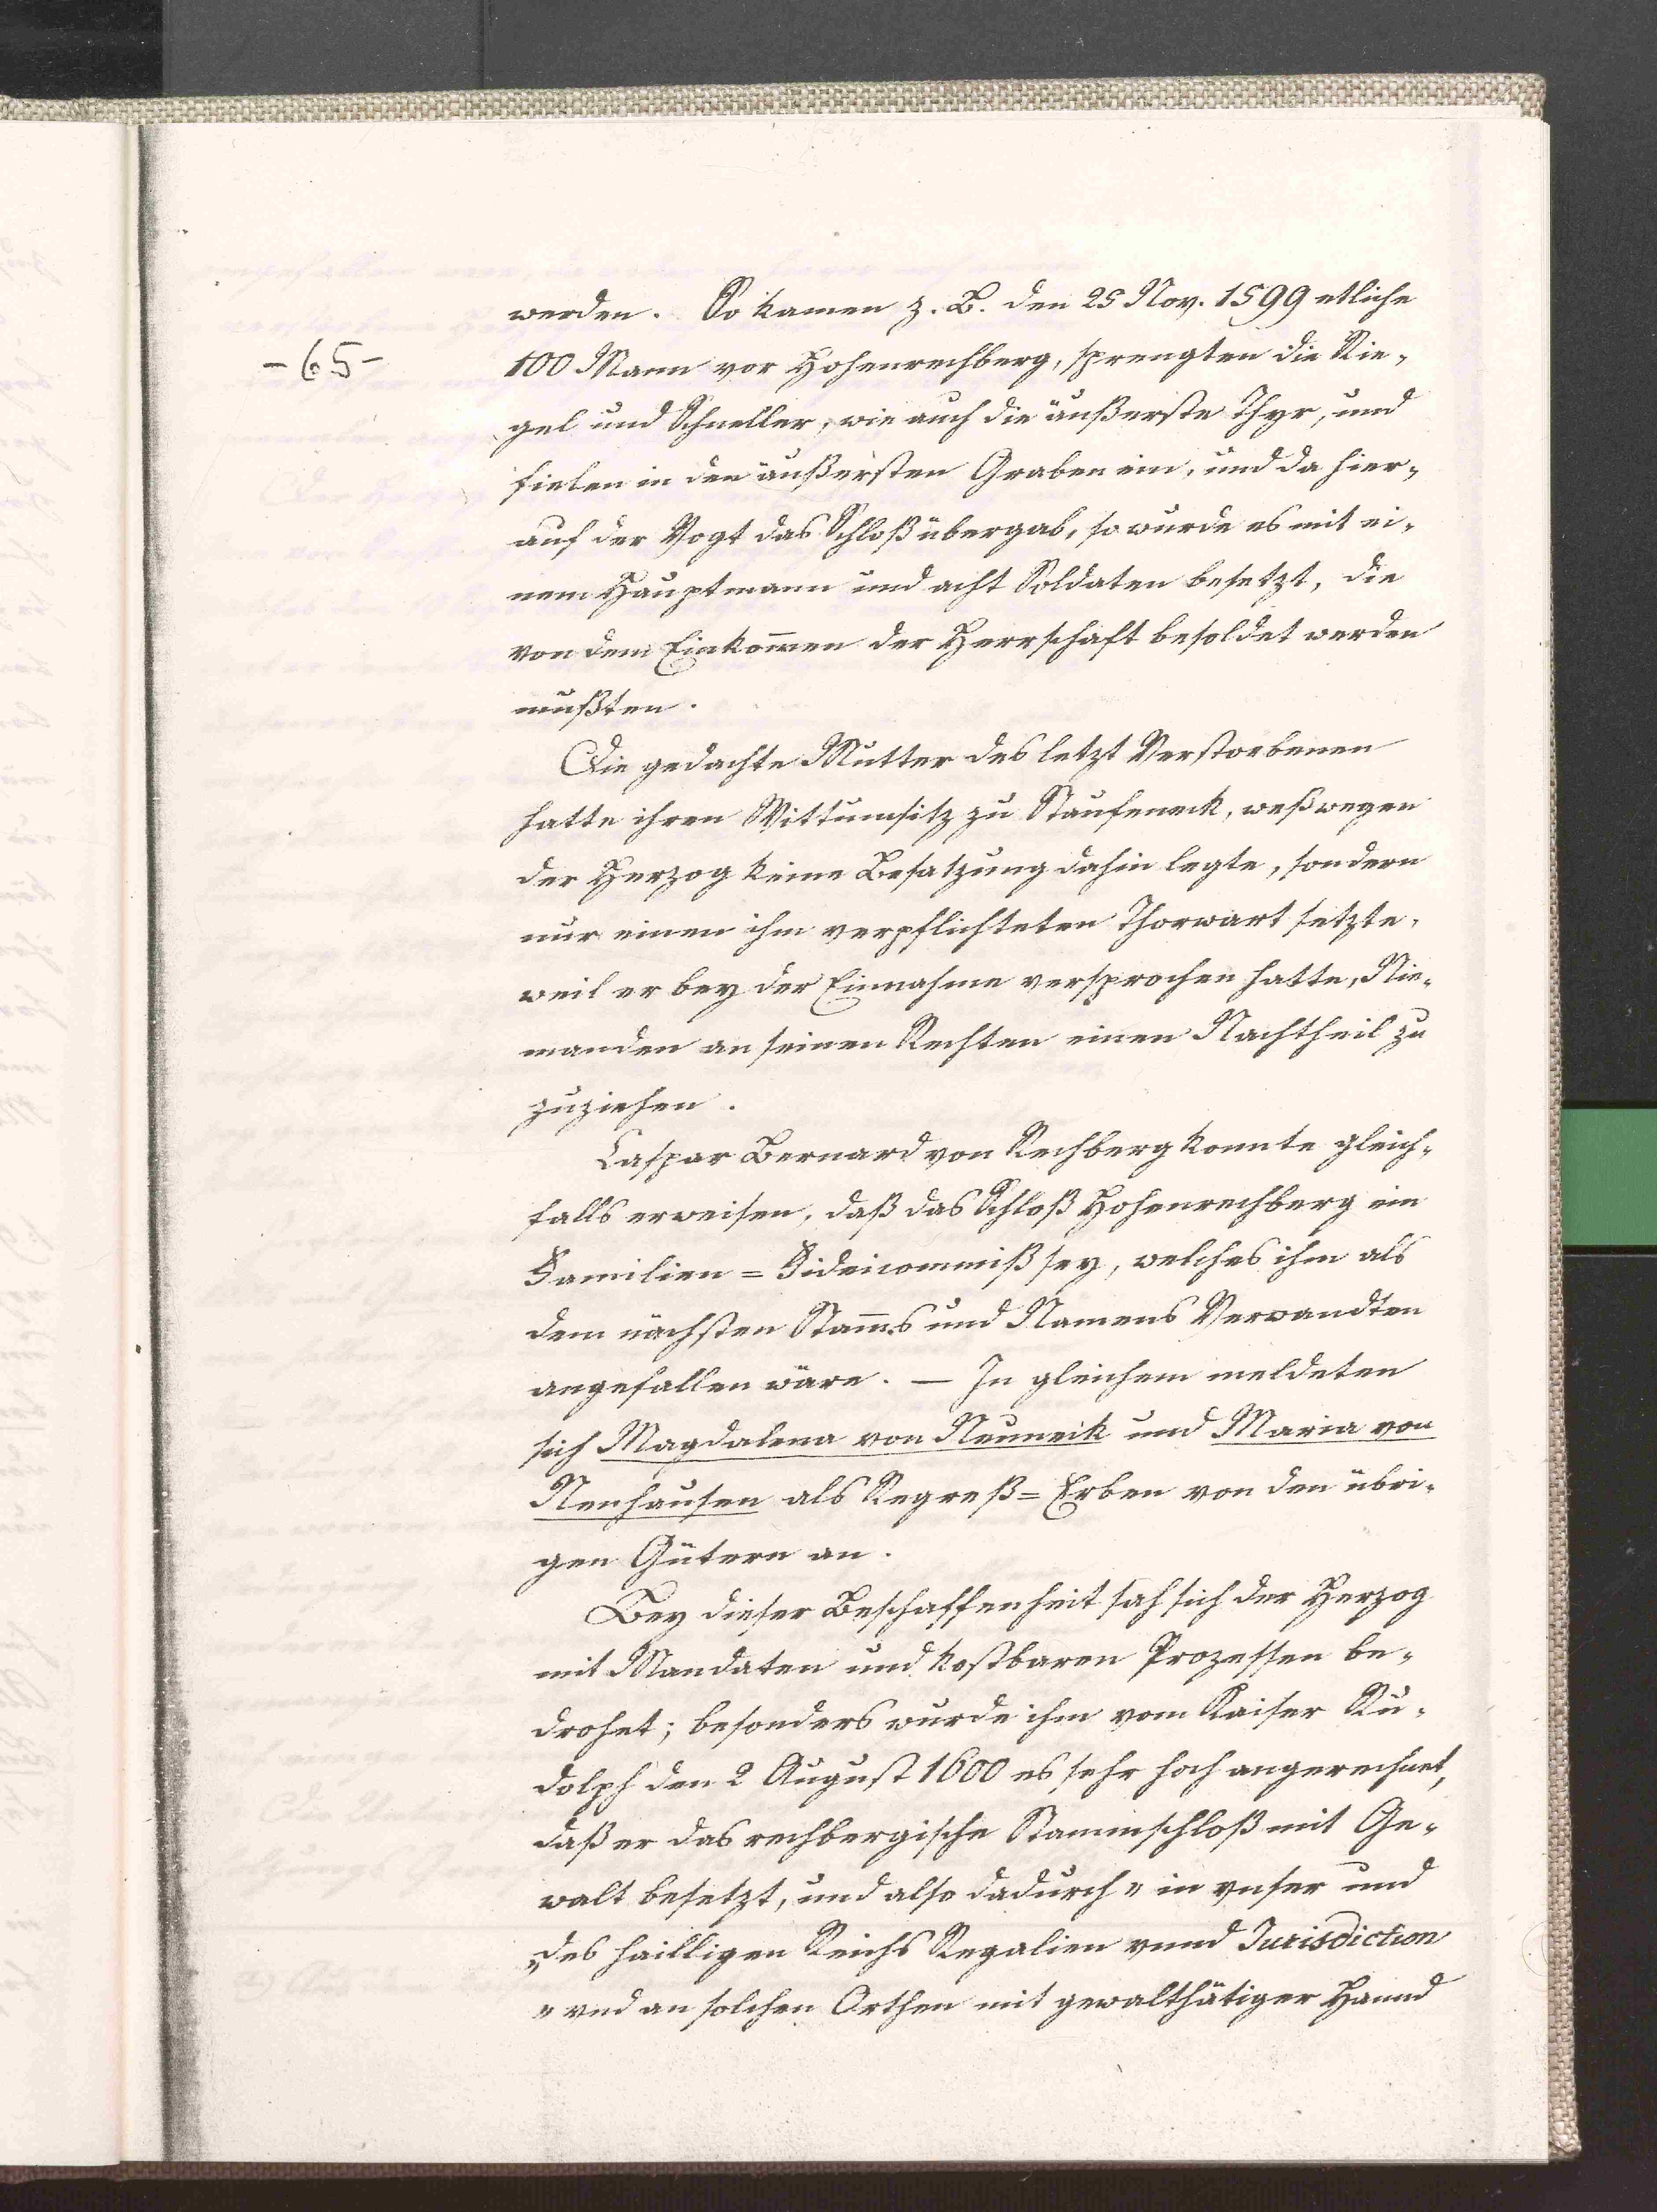 werden. So kamen z. B. den 25 Nov. 1599 etliche
-65-
100 Mann vor Hohenrechberg, sprengten die Rie-
gel und Schneller, wie auch die äußerste Thyr, und
fielen in den äußersten Graben ein, und da hier-
auf der Vogt das Schloß übergab, so wurde es mit ei-
nem Hauptmann und acht Soldaten besetzt, die
von dem Einkom̄en der Herrschaft besoldet werden
mußten.
Die gedachte Mutter des letzt Verstorbenen
hatte ihren Wittumsitz zu Staufeneck, weßwegen
der Herzog keine Besatzung dahin legte, sondern
nur einen ihm verpflichteten Thorwart setzte,
weil er bey der Einnahme versprochen hatte, Nie-
manden an seinen Rechten einen Nachtheil zu
zuziehen.
Caspar Bernard von Rechberg konnte gleich-
falls erweisen, daß das Schloß Hohenrechberg ein
Familien=Fideicommiß sey, welches ihm als
dem nächsten Stam̄s und Namens Verwandten
angefallen wäre. — In gleichem meldeten
sich Magdalena von Neuneik und Maria von
Neuhausen als Regreß=Erben von den übri-
gen Gütern an.
Bey dieser Beschaffenheit sah sich der Herzog
mit Mandaten und kostbaren Prozessen be-
drohet; besonders wurde ihm vom Kaiser Ru-
dolph den 2 August 1600 es sehr hoch angerechnet,
daß er das rechbergische Stammschloß mit Ge-
walt besetzt, und also dadurch „in vnser und
„des hailligen Reichs Regalien vnnd Jurisdiction
„vnd an solchen Orthen mit gewalthätiger Hannd